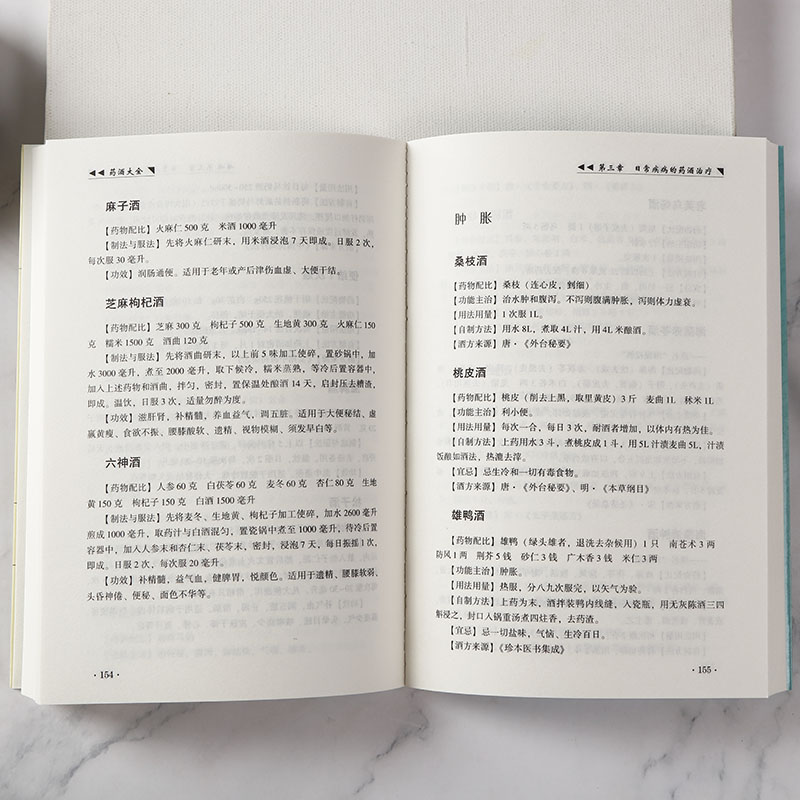 药酒大全
麻子酒
【药物配比】火麻仁 500 克 米酒 1000 毫升
【制法与服法】先将火麻仁研末，用米酒浸泡 7 天即成。日服 2 次，
每次服 30 毫升。
【功效】润肠通便。适用于老年或产后津伤血虚、大便干结。
芝麻枸杞酒
【药物配比】芝麻 300 克 枸杞子 500 克 生地黄 300 克 火麻仁 150
克 糯米 1500 克 酒曲 120 克
【制法与服法】先将酒曲研末，以上前 5 味加工使碎，置砂锅中，加
水 3000 毫升，煮至 2000 毫升，取下候冷，糯米蒸熟，等冷后置容器中，
加入上述药物和酒曲，拌匀，密封，置保温处酿酒 14 天，启封压去糟渣，
即成。温饮，日服 3 次，适量勿醉为度。
【功效】滋肝肾，补精髓，养血益气，调五脏。适用于大便秘结、虚
羸黄瘦、食欲不振、腰膝酸软、遗精、视物模糊、须发早白等。
六神酒
【药物配比】人参 60 克 白茯苓 60 克 麦冬 60 克 杏仁 80 克 生地
黄 150 克 枸杞子 150 克 白酒 1500 毫升
【制法与服法】先将麦冬、生地黄、枸杞子加工使碎，加水 2600 毫升
煎成 1000 毫升，取药汁与白酒混匀，置瓷锅中煮至 1000 毫升，待冷后置
容器中，加入人参末和杏仁末、茯苓末，密封，浸泡 7 天，每日振摇 1 次，
即成。日服 2 次，每次服 20 毫升。
【功效】补精髓，益气血，健脾胃，悦颜色。适用于遗精、腰膝软弱、
头昏神倦、便秘、面色不华等。
· 154 ·
第三章 日常疾病的药酒治疗
肿 胀
桑枝酒
【药物配比】桑枝（连心皮，剉细）
【功能主治】治水肿和腹泻。不泻则腹满肿胀，泻则体力虚衰。
【用法用量】1 次服 1L。
【自制方法】用水 8L，煮取 4L 汁，用 4L 米酿酒。
【酒方来源】唐·《外台秘要》
桃皮酒
【药物配比】桃皮（削去上黑，取里黄皮）3 斤 麦曲 1L 秫米 1L
【功能主治】利小便。
【用法用量】每次一合，每日 3 次，耐酒者增加，以体内有热为佳。
【自制方法】上药用水 3 斗，煮桃皮成 1 斗，用 5L 汁渍麦曲 5L，汁渍
饭酿如酒法，热漉去滓。
【宜忌】忌生冷和一切有毒食物。
【酒方来源】唐·《外台秘要》、明·《本草纲目》
雄鸭酒
【药物配比】雄鸭（绿头雄者，退洗去杂候用）1 只 南苍术 3 两
防风 1 两 荆芥 5 钱 砂仁 3 钱 广木香 3 钱 米仁 3 两
【功能主治】肿胀。
【用法用量】热服，分八九次服完，以矢气为验。
【自制方法】上药为末，酒拌装鸭内线缝，入瓷瓶，用无灰陈酒三四
斛浸之，封口入锅重汤煮四炷香，去药渣。
【宜忌】忌一切盐味，气恼，生冷百日。
【酒方来源】《珍本医书集成》
· 155 ·